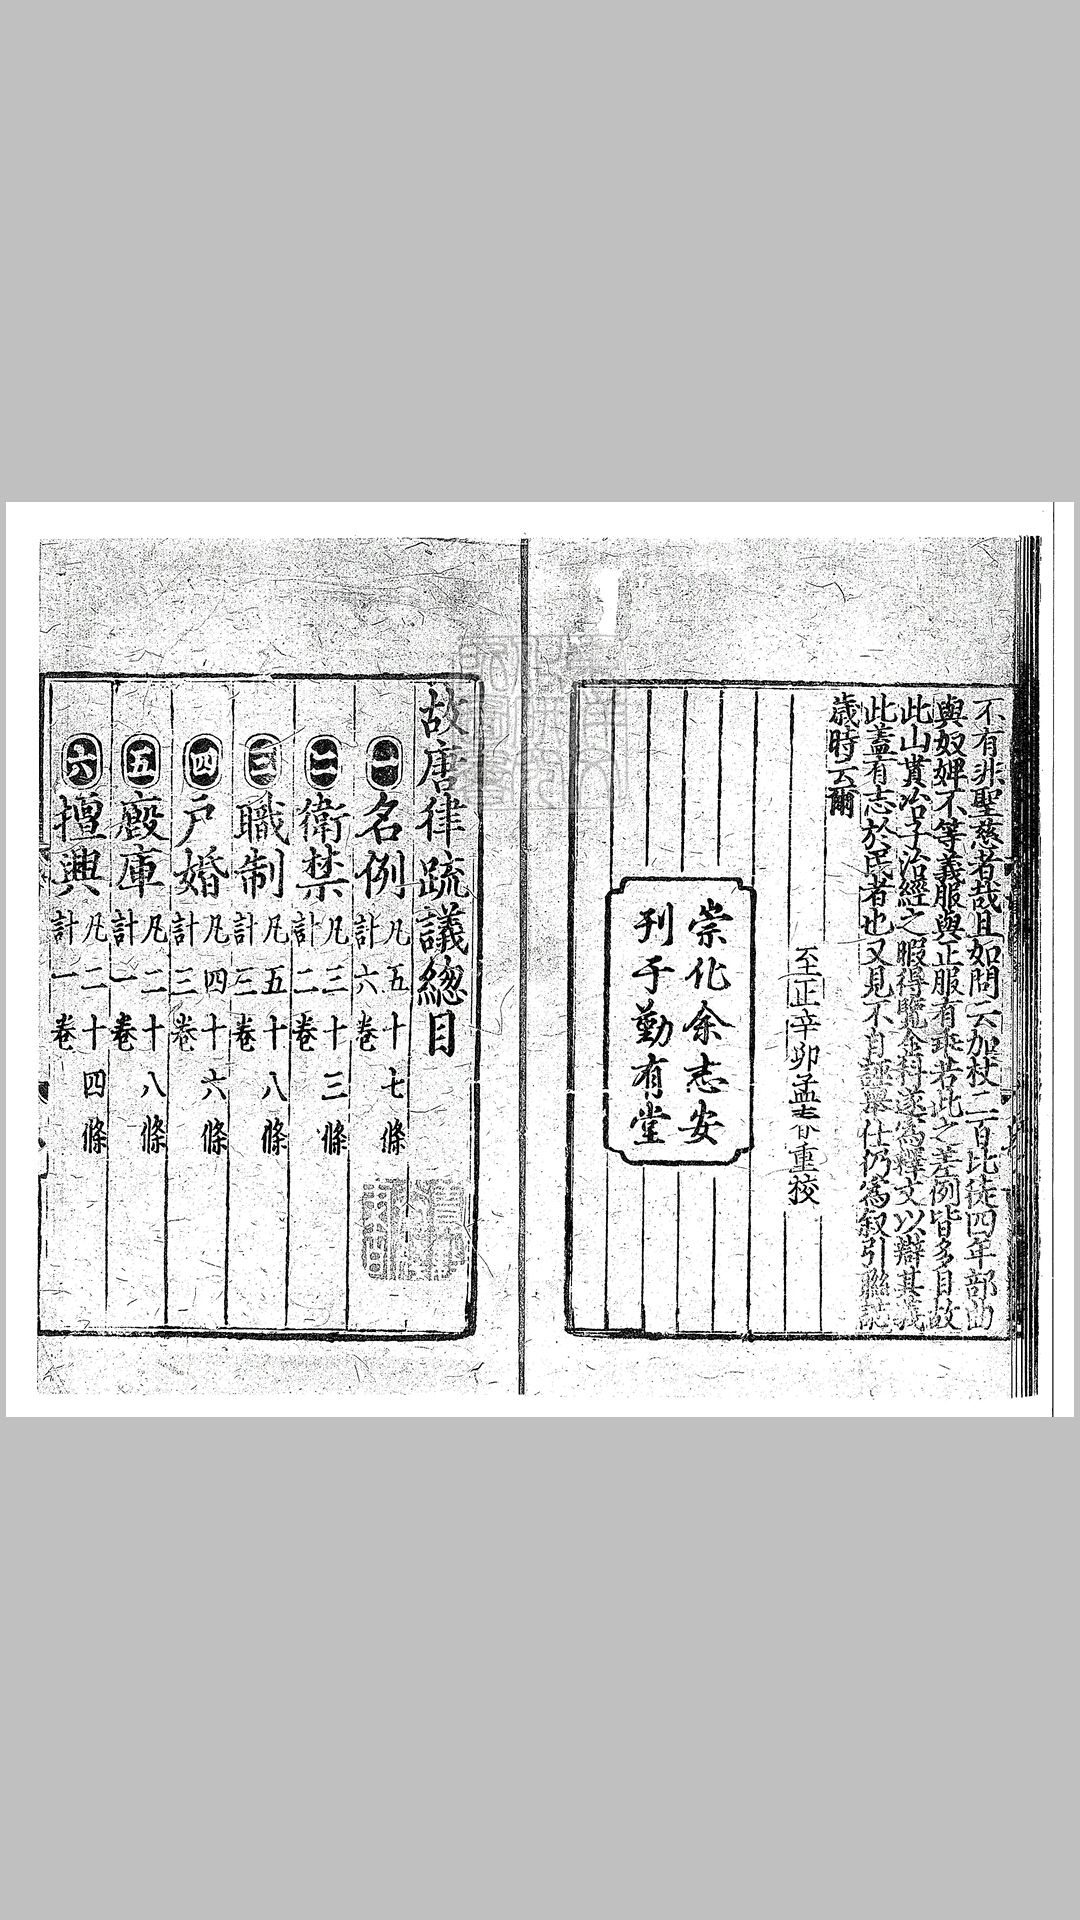 不有非聖慈者哉且如問云加杖二百比徒四年部曲
與奴婢不等義服與正服有乖若此之差例皆多目故
此山貰冶子治經之暇得覽金科遂為釋文以辯其義
此蓋有志於民者也又見不自謹舉仕仍為叙引聯誌
歲時云爾
至正辛卯孟春重校
崇化余志安
刊于勤有堂
故唐律疏議總目
一 名例 凡五十七條 計六卷
二 衛禁 凡三十三條 計二卷
三 職制 凡五十八條 計三卷
四 戶婚 凡四十六條 計三卷
五 廄庫 凡二十八條 計一卷
六 擅興 凡二十四條 計一卷